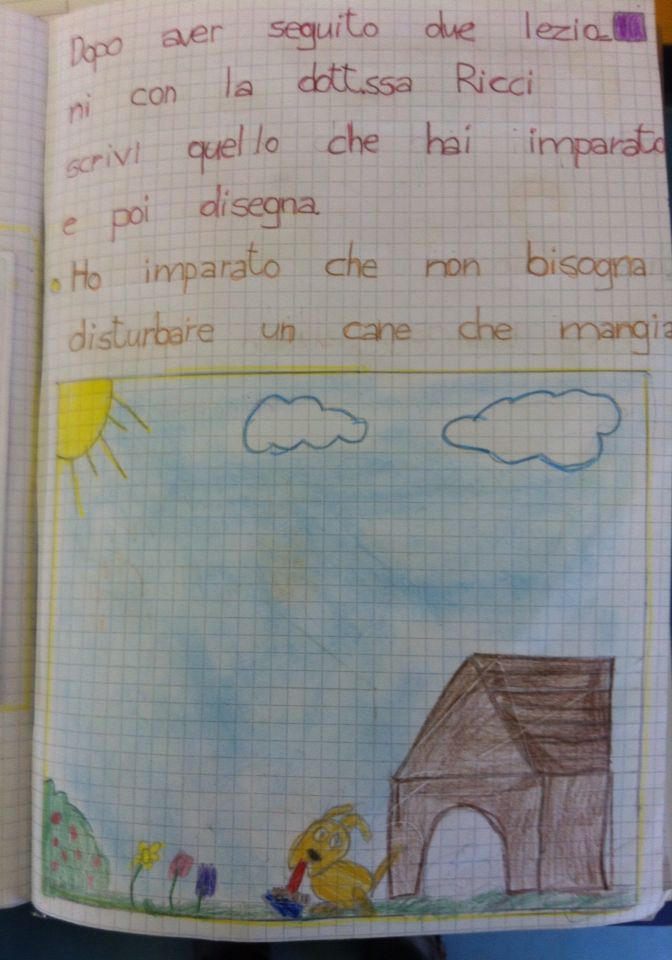 Dopo aver seguito due lezio
ni con la dott.ssa Ricci
scrivi quello che hai imparato
e poi disegna.
Ho imparato che non bisogna
disturbare un cane che mangia